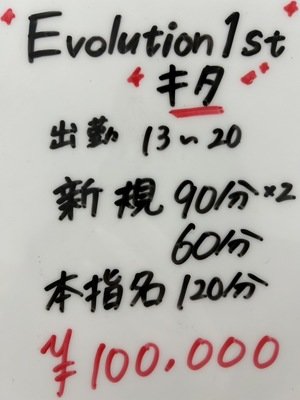 Evolution 1st
キタ
出勤 13〜20
新規 90分×2
60分
本指名 120分
¥100.000